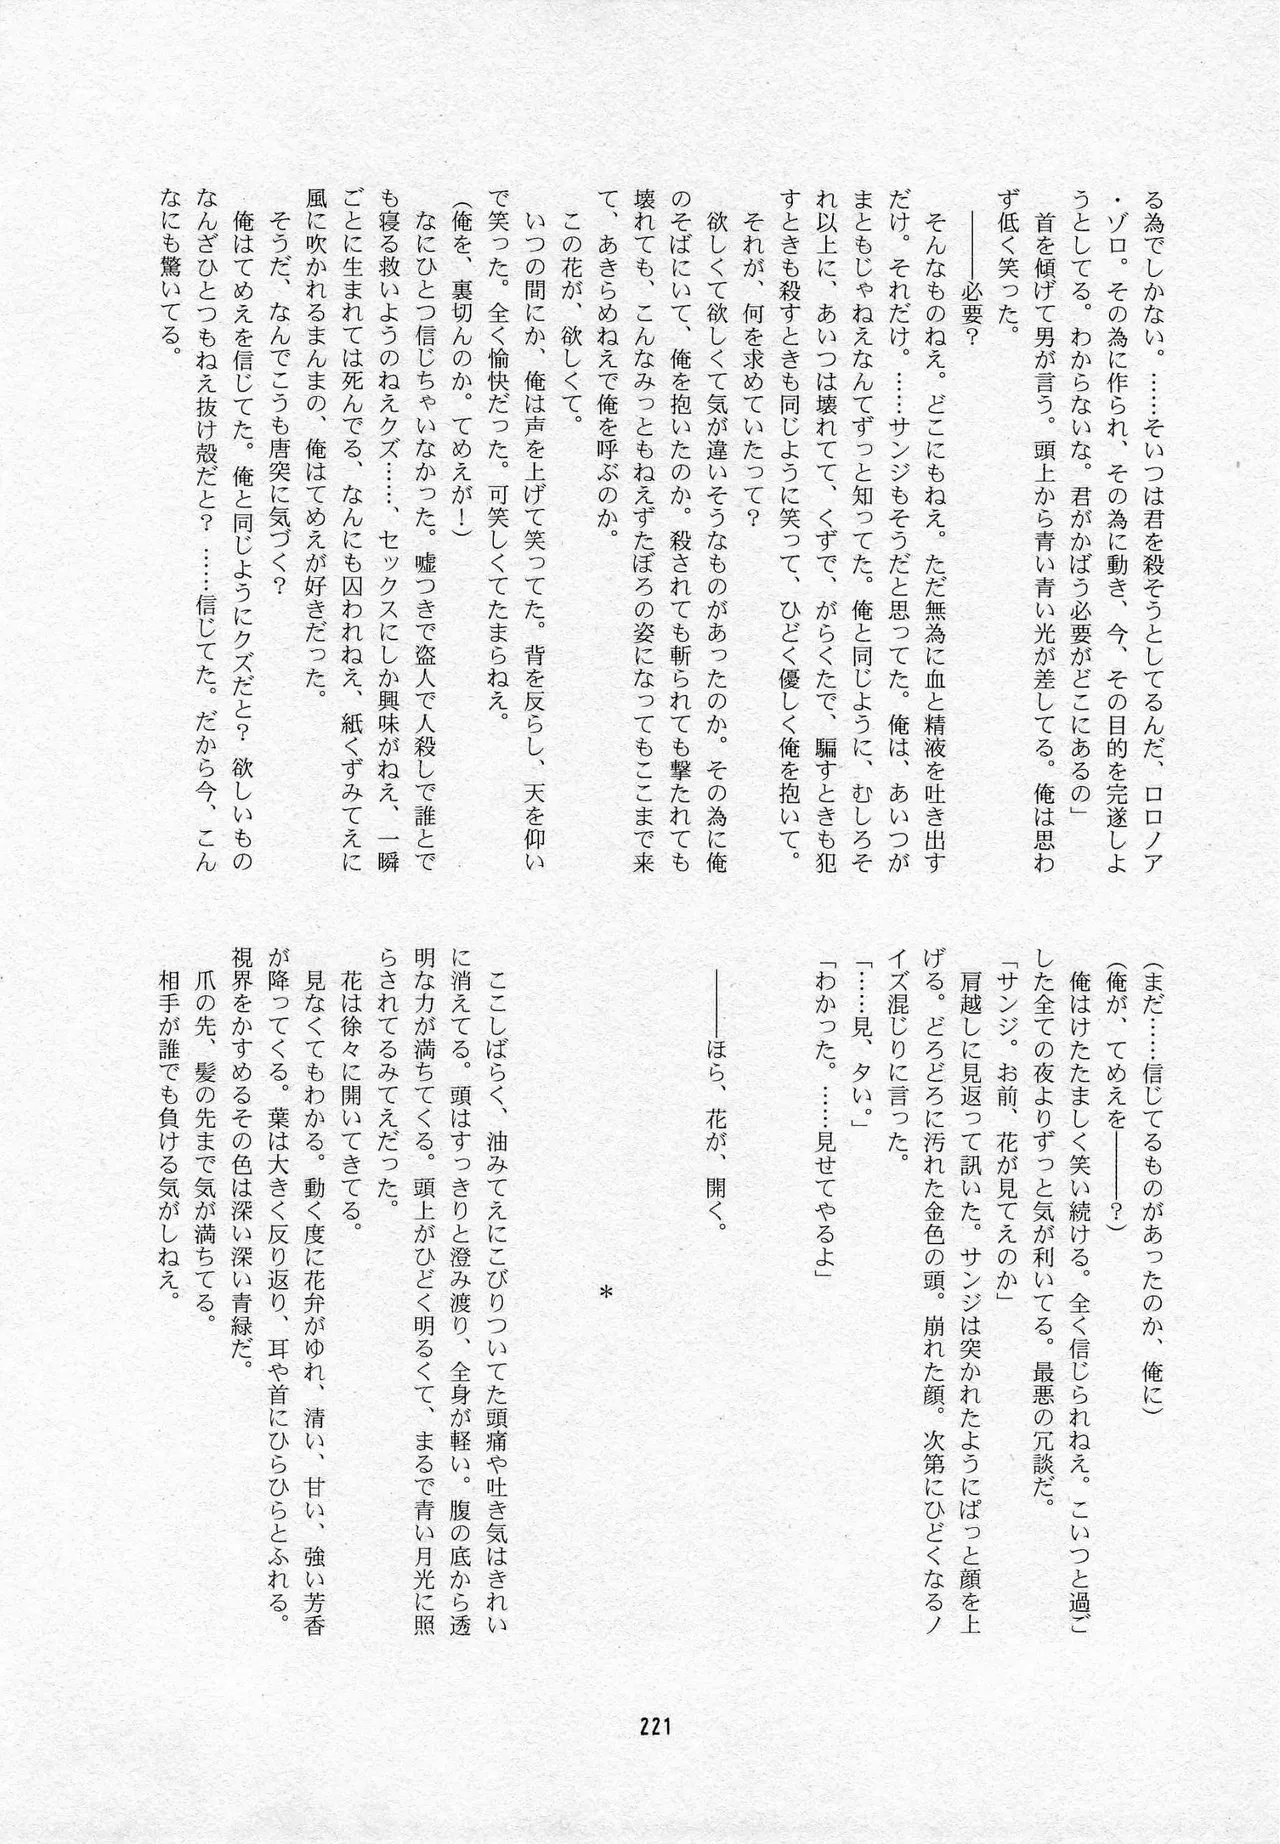 る為でしかない。……そいつは君を殺そうとしてるんだ、ロロノア
・ゾロ。その為に作られ、その為に動き、今、その目的を完遂しよ
うとしてる。わからないな。君がかばう必要がどこにあるの」
首を傾げて男が言う。頭上から青い青い光が差してる。俺は思わ
ず低く笑った。
――必要？
そんなものねえ。どこにもねえ。ただ無為に血と精液を吐き出す
だけ。それだけ。……サンジもそうだと思ってた。俺は、あいつが
まともじゃねえなんてずっと知ってた。俺と同じように、むしろそ
れ以上に、あいつは壊れてて、くずで、がらくたで、騙すときも犯
すときも殺すときも同じように笑って、ひどく優しく俺を抱いて。
それが、何を求めていたって？
欲しくて欲しくて気が違いそうなものがあったのか。その為に俺
のそばにいて、俺を抱いたのか。殺されても斬られても撃たれても
壊れても、こんなみっともねえずたぼろの姿になってもここまで来
て、あきらめねえで俺を呼ぶのか。
この花が、欲しくて。
いつの間にか、俺は声を上げて笑ってた。背を反らし、天を仰い
で笑った。全く愉快だった。可笑しくてたまらねえ。
（俺を、裏切んのか。てめえが！）
なにひとつ信じちゃいなかった。嘘つきで盗人で人殺しで誰とで
も寝る救いようのねえクズ……、セックスにしか興味がねえ、一瞬
ごとに生まれては死んでる、なんにも囚われねえ、紙くずみてえに
風に吹かれるまんまの、俺はてめえが好きだった。
そうだ、なんでこうも唐突に気づく？
俺はてめえを信じてた。俺と同じようにクズだと？　欲しいもの
なんざひとつもねえ抜け殻だと？　……信じてた。だから今、こん
なにも驚いてる。
（まだ……信じてるものがあったのか、俺に）
（俺が、てめえを――？）
俺はけたたましく笑い続ける。全く信じられねえ。こいつと過ご
した全ての夜よりずっと気が利いてる。最悪の冗談だ。
「サンジ。お前、花が見てえのか」
肩越しに見返って訊いた。サンジは突かれたようにぱっと顔を上
げる。どろどろに汚れた金色の頭。崩れた顔。次第にひどくなるノ
イズ混じりに言った。
「……見、タい。」
「わかった。……見せてやるよ」
――ほら、花が、開く。
＊
ここしばらく、油みてえにこびりついてた頭痛や吐き気はきれい
に消えてる。頭はすっきりと澄み渡り、全身が軽い。腹の底から透
明な力が満ちてくる。頭上がひどく明るくて、まるで青い月光に照
らされてるみてえだった。
花は徐々に開いてきてる。
見なくてもわかる。動く度に花弁がゆれ、清い、甘い、強い芳香
が降ってくる。葉は大きく反り返り、耳や首にひらひらとふれる。
視界をかすめるその色は深い深い青緑だ。
爪の先、髪の先まで気が満ちてる。
相手が誰でも負ける気がしねえ。
221